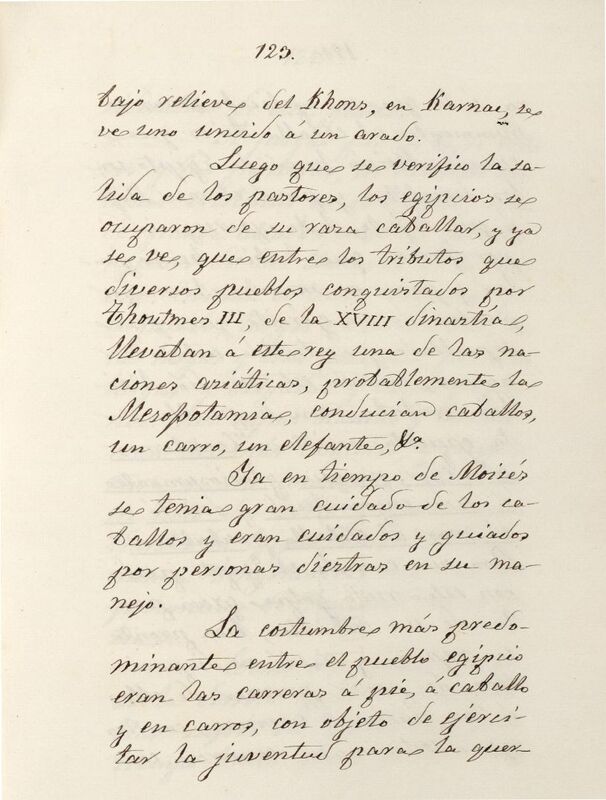 123.
bajo relieve del Khons, en Karnac, se
ve uno uncido á un arado.
Luego que se verifico la sa-
lida de los pastores, los egipcios se
ocuparon de su raza caballar, y ya
se ve, que entre los tributos que
diversos pueblos conquistados por
Thoutmes III, de la XVIII dinastía,
llevaban á este rey una de las na-
ciones asiáticas, probablemente la
Mesopotamia, conducian caballos,
un carro, un elefante, &a.
Ya en tiempo de Moisés
se tenia gran cuidado de los ca-
ballos y eran cuidados y guiados
por personas diestras en su ma-
nejo.
La costumbre más predo-
minante entre el pueblo egipcio
eran las carreras á pié, á caballo
y en carros, con objeto de ejerci-
tar la juventud para la guer-